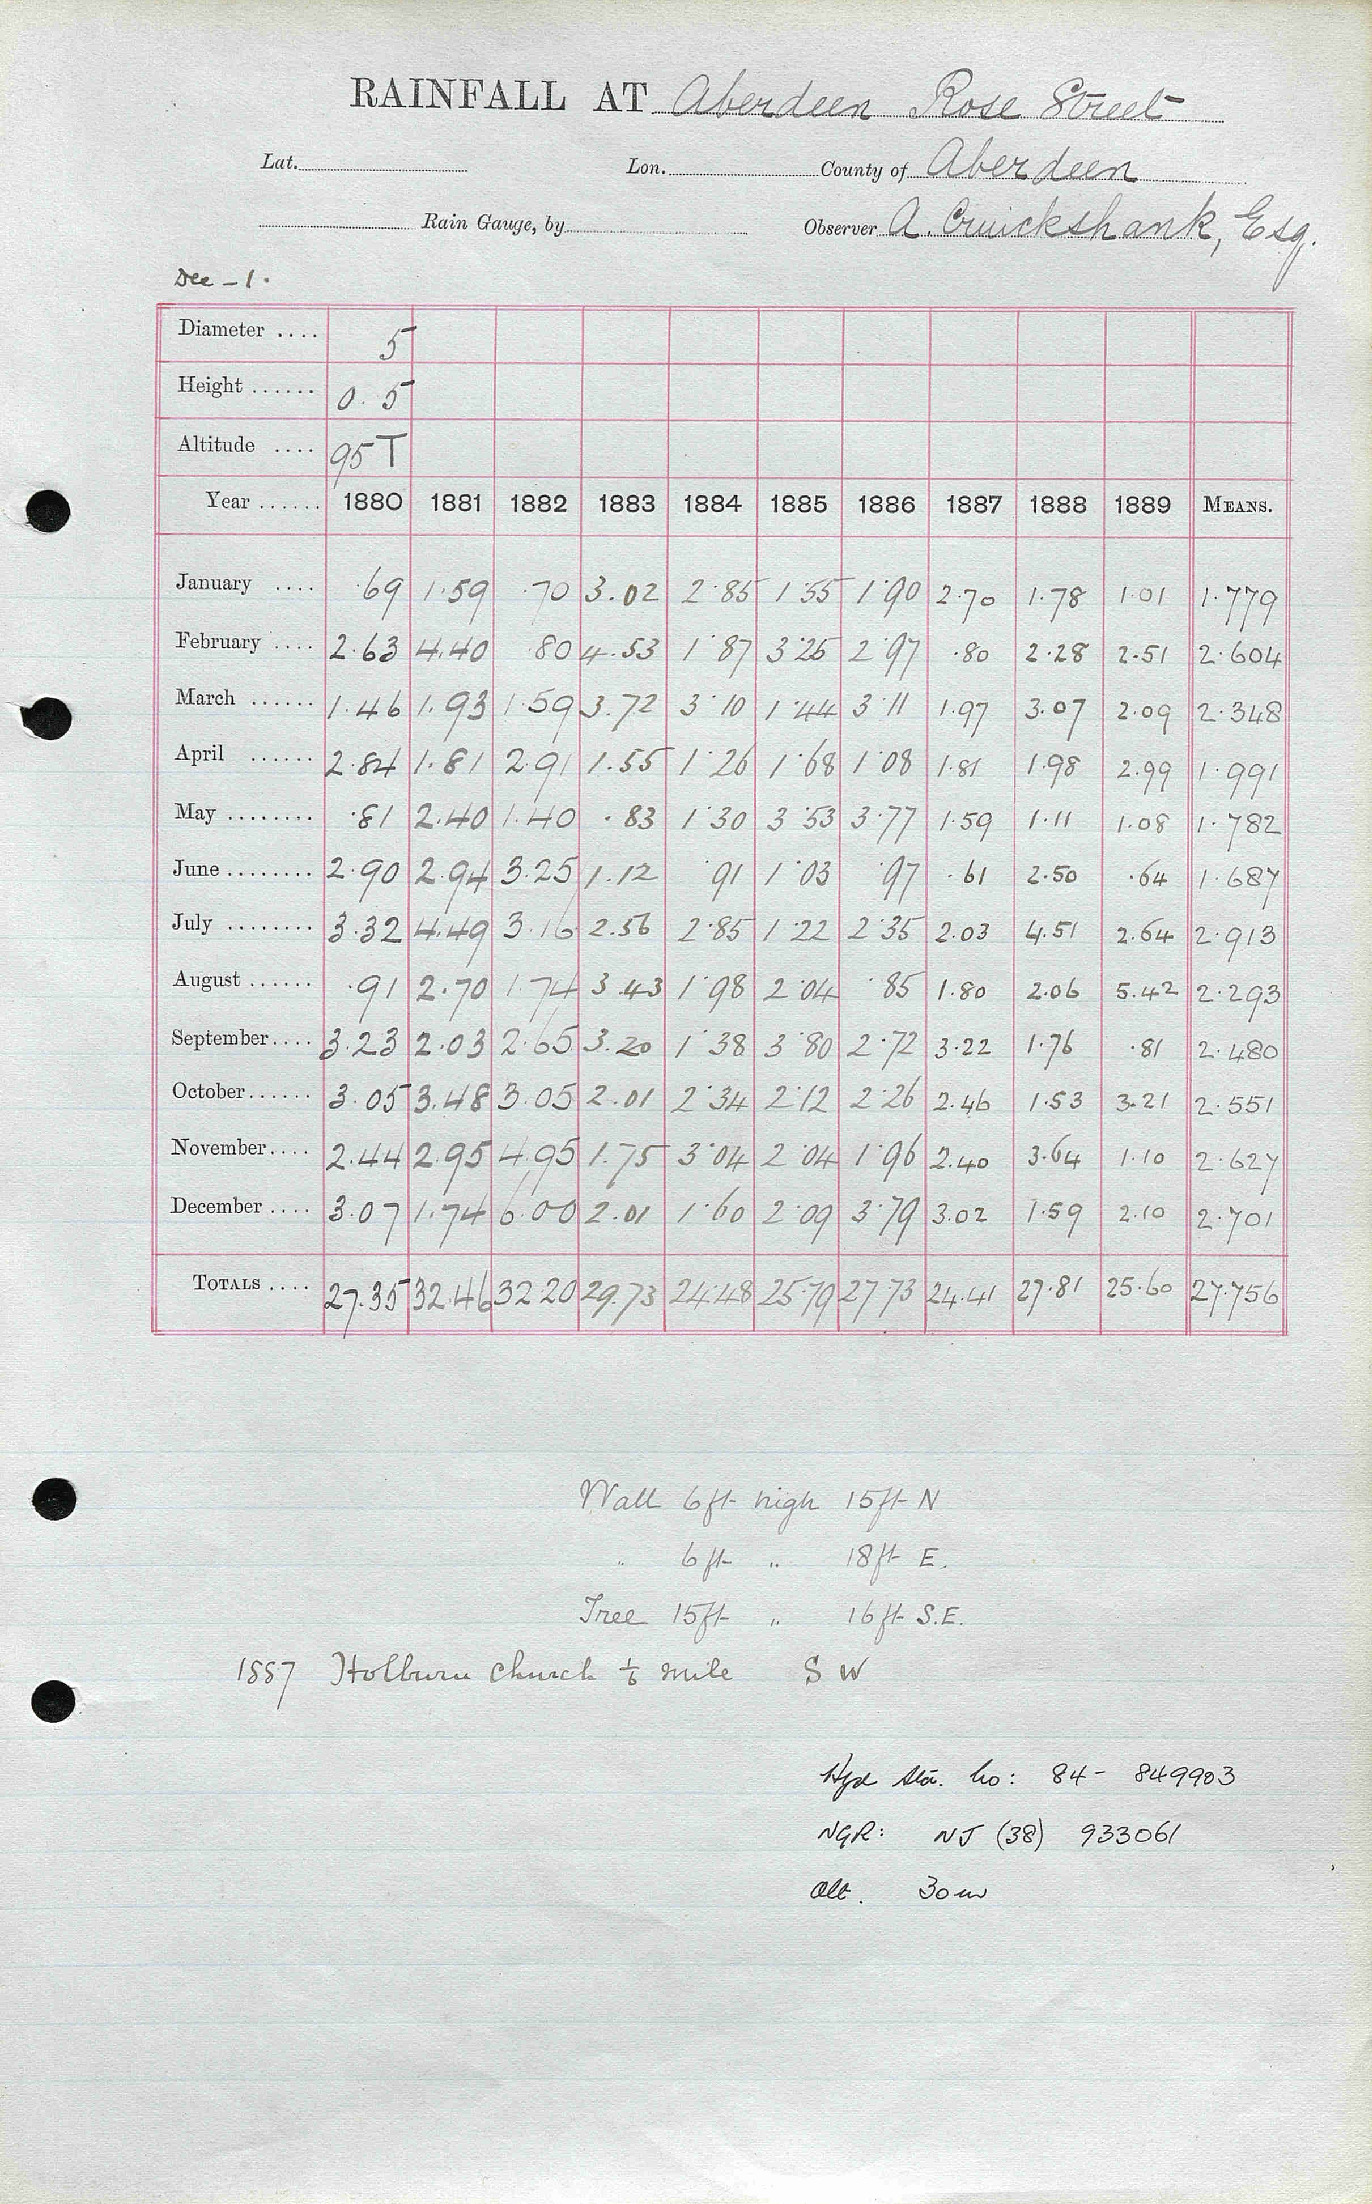 RAINFALL AT Aberdeen Rose Street
Lat. Lon. County of Aberdeen
Rain Gauge, by Observer A. Cruickshank, Esq.
Dee - 1.
Diameter .... 5
Height ...... 0.5
Altitude .... 95 T
Year ...... 1880 1881 1882 1883 1884 1885 1886 1887 1888 1889 MEANS.
January .... .69 1.59 .70 3.02 2.85 1.55 1.90 2.70 1.78 1.01 1.779
February .... 2.63 4.40 .80 4.53 1.87 3.25 2.97 .80 2.28 2.51 2.604
March ...... 1.46 1.93 1.59 3.72 3.10 1.44 3.11 1.97 3.07 2.09 2.348
April ...... 2.84 1.81 2.91 1.55 1.26 1.68 1.08 1.81 1.98 2.99 1.991
May ........ .81 2.40 1.40 .83 1.30 3.53 3.77 1.59 1.11 1.08 1.782
June ........ 2.90 2.94 3.25 1.12 .91 1.03 .97 .61 2.50 .64 1.687
July ........ 3.32 4.49 3.16 2.56 2.85 1.22 2.35 2.03 4.51 2.64 2.913
August ...... .91 2.70 1.74 3.43 1.98 2.04 .85 1.80 2.06 5.42 2.293
September .... 3.23 2.03 2.65 3.20 1.38 3.80 2.72 3.22 1.76 .81 2.480
October ...... 3.05 3.48 3.05 2.01 2.34 2.12 2.26 2.46 1.53 3.21 2.551
November .... 2.44 2.95 4.95 1.75 3.04 2.04 1.96 2.40 3.64 1.10 2.627
December .... 3.07 1.74 6.00 2.01 1.60 2.09 3.79 3.02 1.59 2.10 2.701
TOTALS .... 27.35 32.46 32.20 29.73 24.48 25.79 27.73 24.41 27.81 25.60 27.756
Wall 6ft high 15ft N
" 6ft " 18ft E.
Tree 15ft " 16ft S.E.
1887 Holburn church ⅙ mile S W
Hyd Sta. No: 84- 849903
NGR: NJ (38) 933061
Alt. 30m